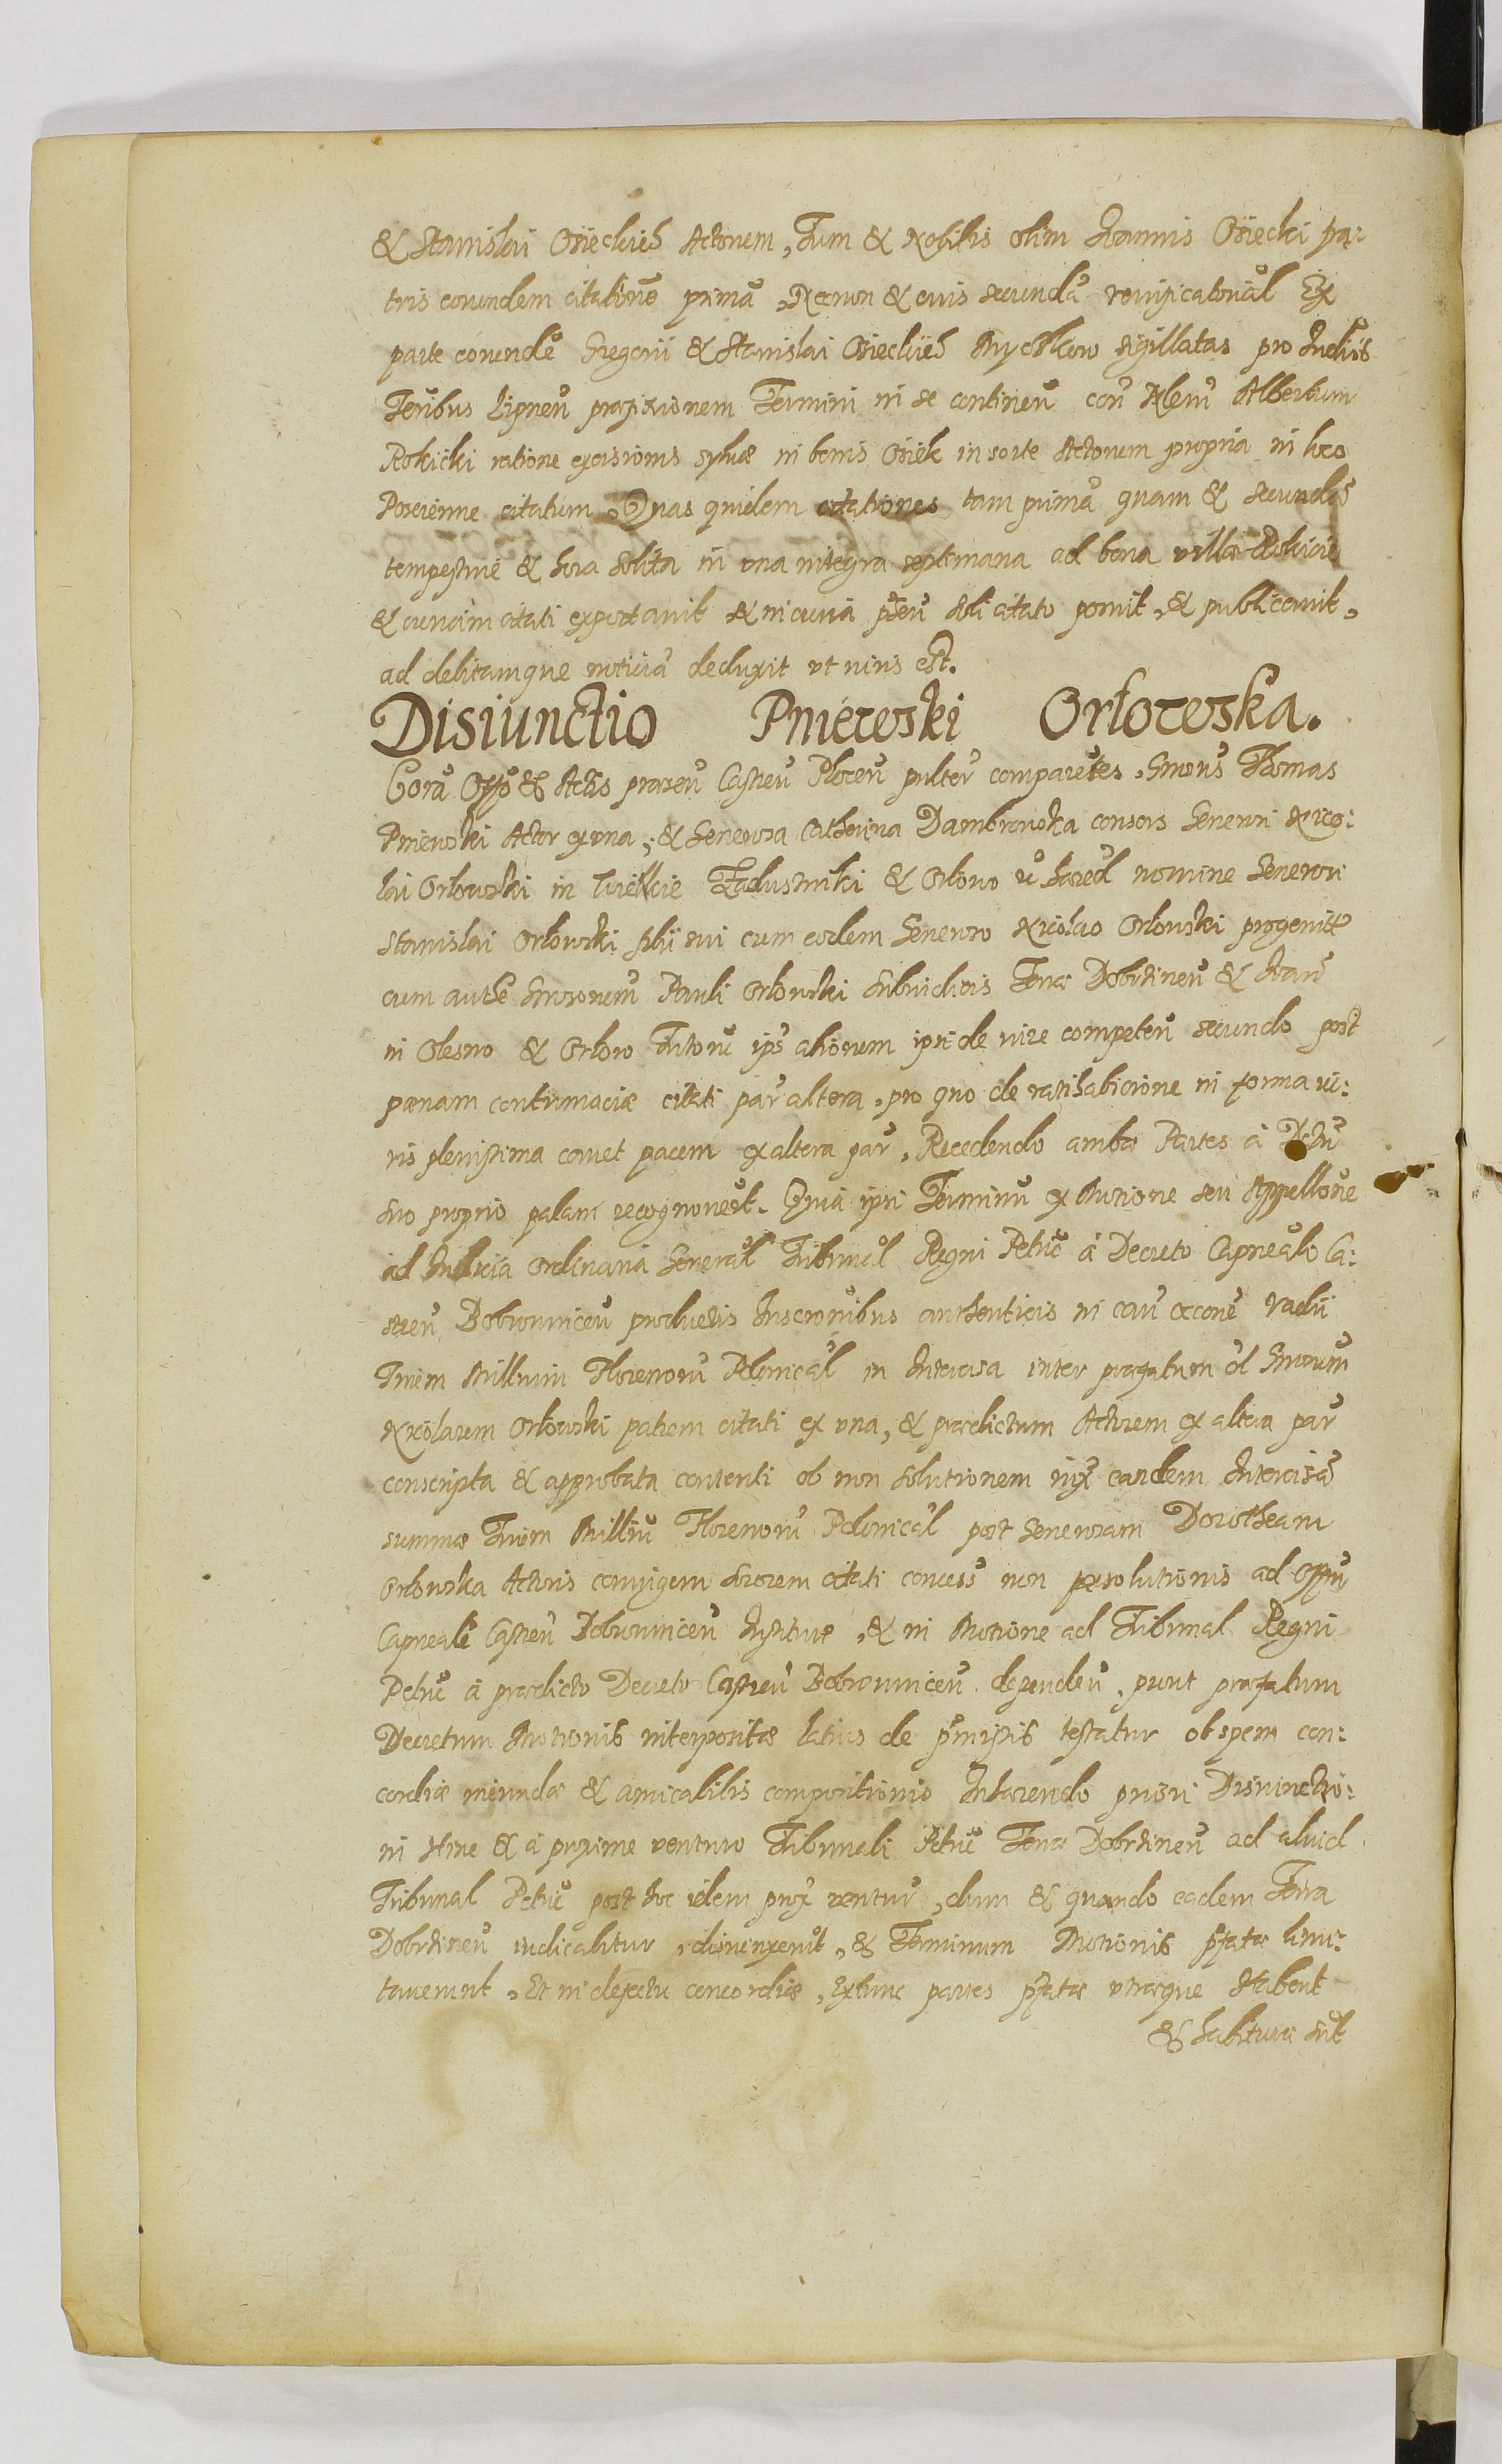 & Stanislai Osieckich Actorum, Tum & Nobilis olim Joannis Osiecki pa:
tris eorundem citatione primã, Necnon & eius secundã reussicatoriãl Ex
parte eorundẽ Gregorii & Stanislai Osieckich Myszkow sigillatas pro Judiis
Terribus Lipneñ praefixionem Termini in se contineñ coñ Nlem Albertum
Rokicki ratione excisionis sylvae in bonis Osiek in sorte Actorum propria in loco
citatum. Quas quidem citationes tam primã quam & secundã
tempestive & hora solita in una integra septimana ad bona villae Rokicie
& curiam citati exportavit & in curia posuit, & publicavit,
ad debitamque noticiã deduxit ut iuris est.
Disiunctio Pniewski Orlowska.
Corã Offo & Actis praeseñ Castreñ Ploceñ psnlter comparẽtes, Gnosus Thomas
Pniewski Actor ex una, & Generosa Catherina Dambrowska consors Generosi Nico:
lai Orlowski in Wielkie Zadusniki & Orlowo hæred nomine Generosi
Stanislai Orlowski filii sui cum eodem Generoso Nicolao Orlowski progenitt
cum authẽ Gnosorum Pauli Orlowski Subiudicis Terrae Dobrzineñ & Joañ
in Olesno & Orlowo Tutorũ ips actionem ipsi de iure competeñ secundo post
paenam contumaciae citati par altera, pro quo de ratihabicione in forma iu:
ris plenissima cavet pacem ex altera par, Recedendo ambae Partes a
suo proprio palam recognoverũt. Quia ipsi Terminũ ex Motione seu Appellone
ad Iudicia Ordinaria Generãl Tribunãl Regni Petric a Decreto Capneãlo Ca:
streñ Bobrowniceñ productis Inscronibus authenticis in caũ occone vadii
Trium Millium Florenorũ Polonicãl in Intercisa inter praefatum ol Gnosum
Nicolaum Orlowski patrem citati ex una, & praedictum Actorem ex altera par
conscripta & approbata contenti ob non solutionem iux eandem Intercisã
summae Trium Milliũ Florenorũ Polonicãl post Generosam Dorotheam
Orlowska Actoris coniugem sororem citati concess non persolutionis ad Offũ
Capneale Castreñ Bobrowniceñ Institut, & in Motione ad Tribunal Regni
Petric a praedicto Decreto Castreñ Bobrowniceñ dependeñ, prout praefatum
Decretum Motionis interpositae latius de pmissis testatur ob spem con:
cordiae ineundae & amicabilis compositionis Inhaerendo priori Disiunctio:
ni hinc & a proxime venturo Tribunali Petric Terrae Dobrzineñ ad aliud
Tribunal Petric post hoc idem prox ventur, dum & quando eadem Terra
Dobrzineñ iudicabitur, disiunxerũt, & Terminum Motionis pfatae limi:
taverunt. Et in defectu concordiae, Extunc partes pfatae utraeque Habent
& habiturae sũt